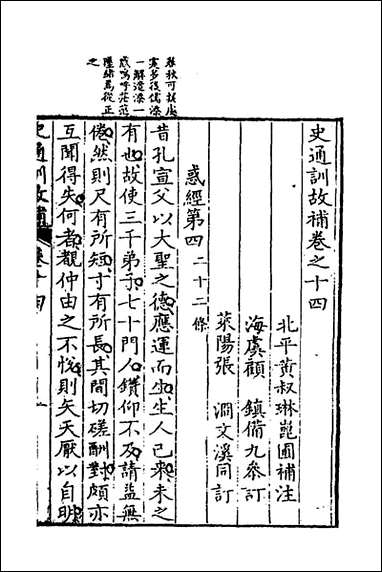 史通訓故補卷之十四
北平黃叔琳崑圃補注
海虞顧 鎮備九參訂
萊陽張 澗文溪同訂
惑經第四 二十二條
昔孔宣父以大聖之德應運而生生人已來未之
有也故使三千弟子七十門人鑽仰不及請益無
倦然則尺有所短寸有所長其間切磋酬對頗亦
互聞得失何者覩仲由之不悅則矢天厭以自明
春秋可疑處
寔多後儒添
一解遂添一
惑嗚呼茫茫
墜緒焉從正
之
史通訓故補 卷十四